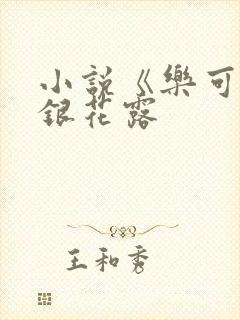 小説《樂可
銀花露
王和秀